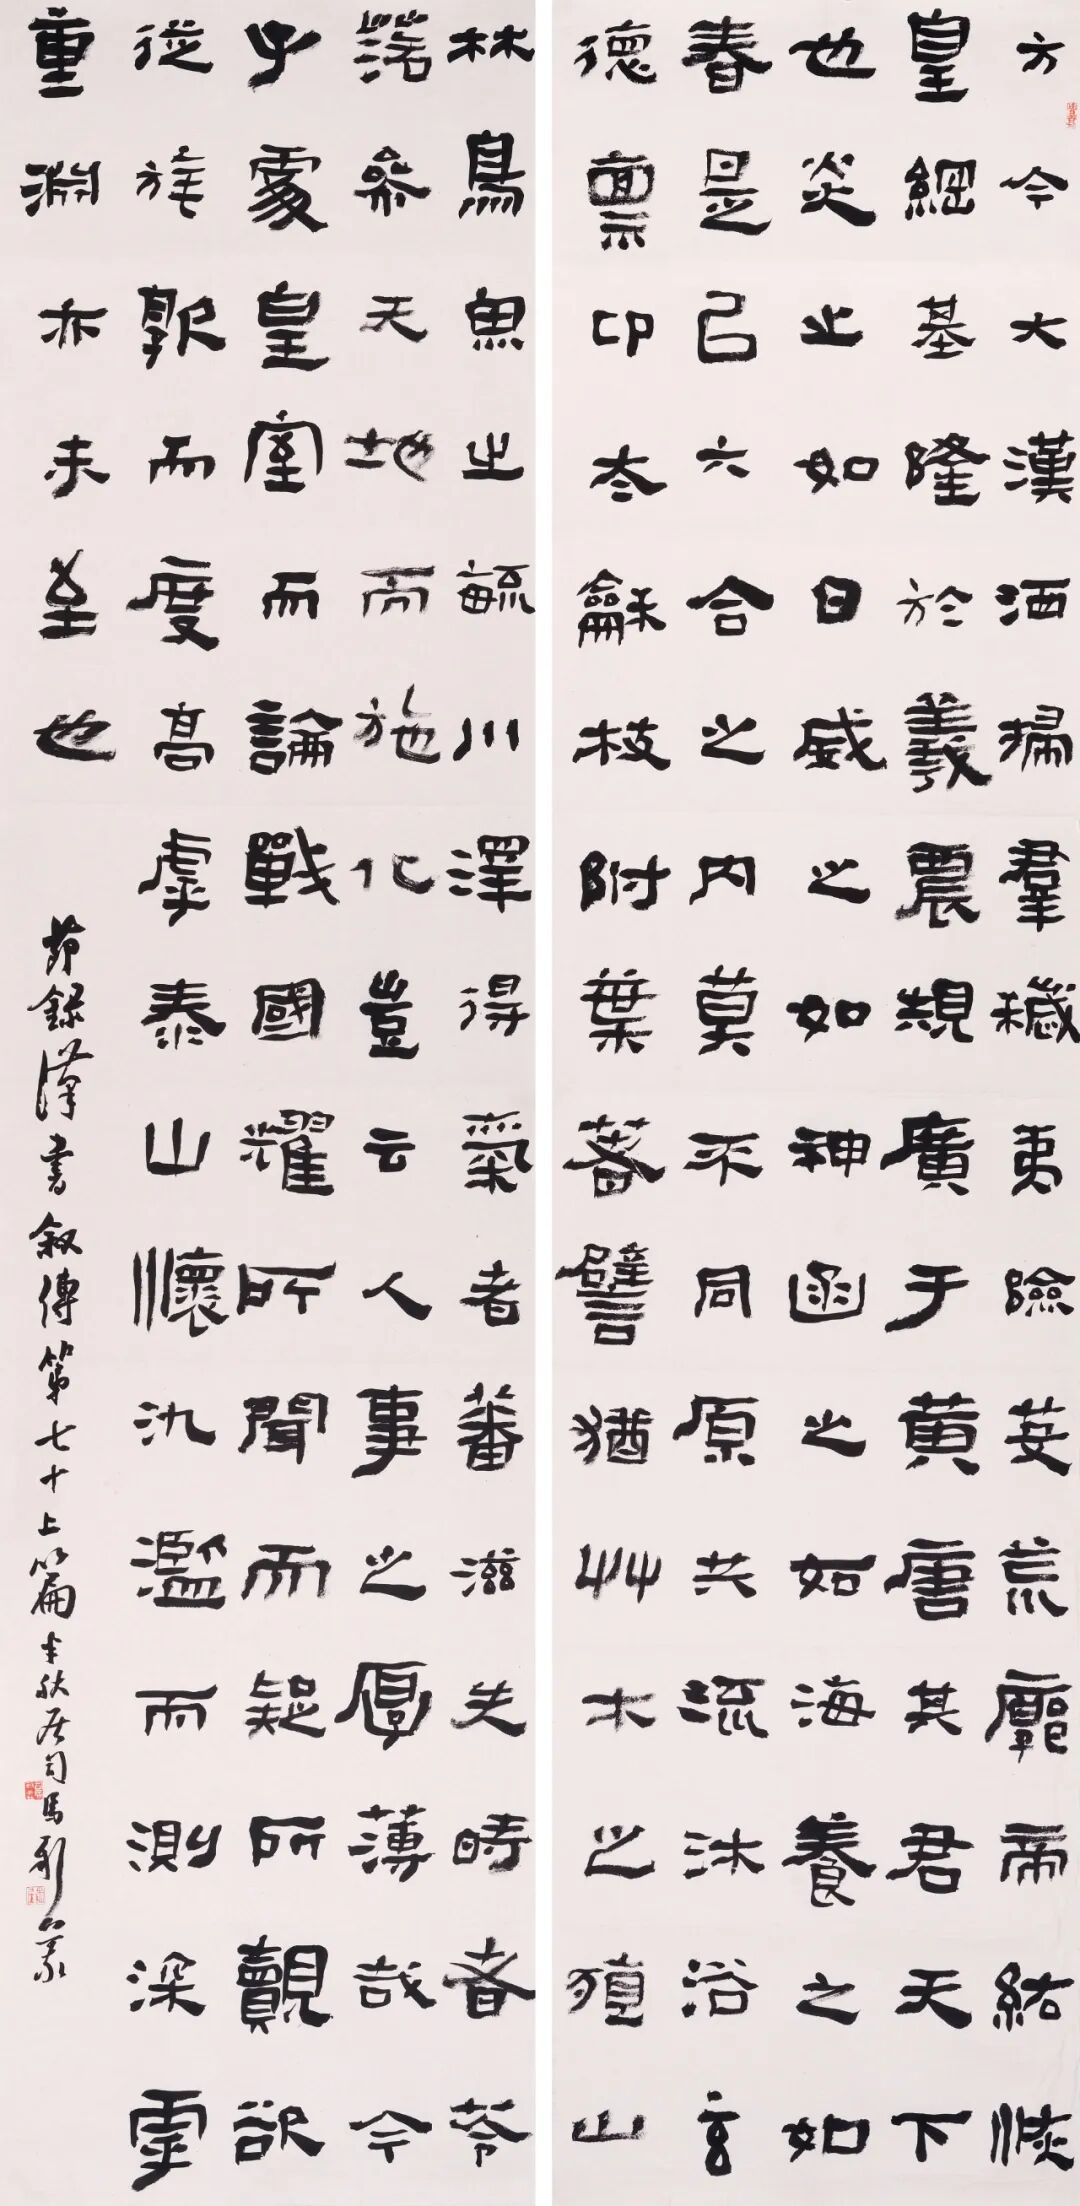 方今大漢洒掃羣穢夷險芟荒廓帝紘恢
皇綱基隆於羲農規廣于黃唐其君天下
也炎之如日威之如神函之如海養之如
春是已六合之内莫不同原共流沐浴玄
德禀卬太龢枝附葉著譬猶艸木之殖山
林鳥魚之毓川澤得氣者蕃滋失時者苓
落參天地而施化豈云人事之厚薄哉今
子處皇室而論戰國耀所聞而疑所覿欲
從旄敦而度高虖泰山懷氿濫而測深虖
重淵亦未至也
節錄漢書叙傳第七十上篇